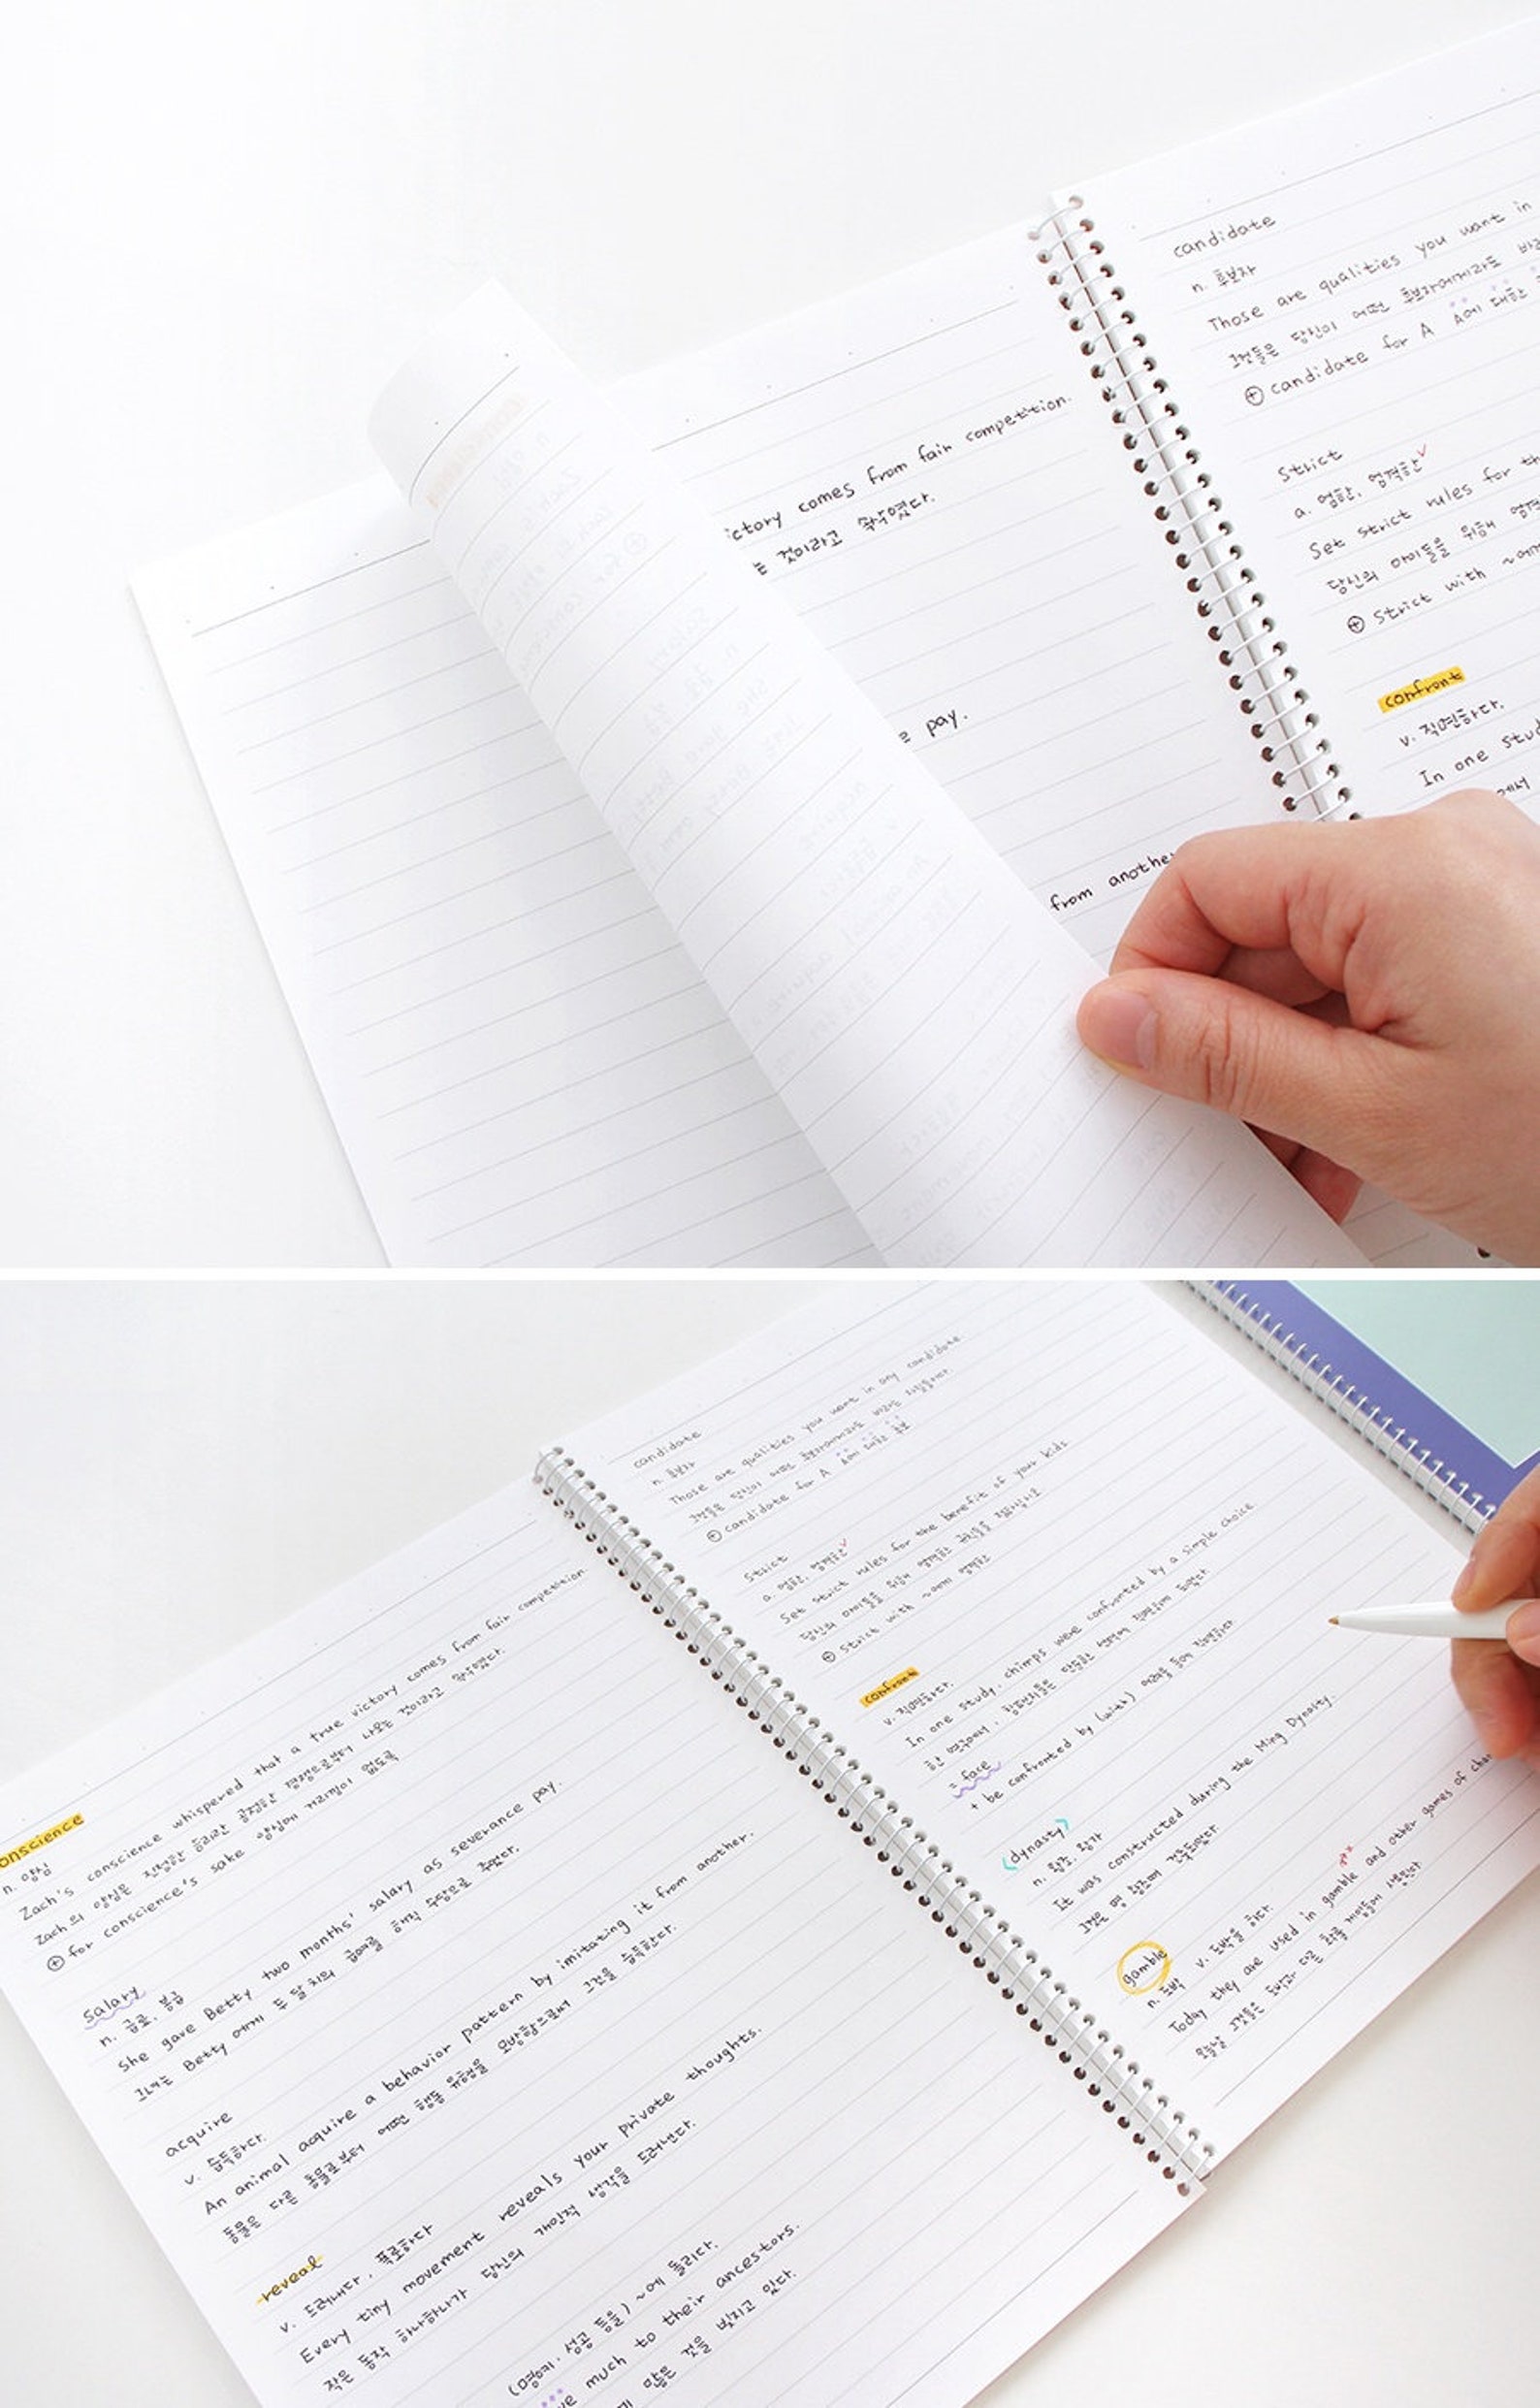 candidate
n. 후보자
Those are qualities you want in
그것들은 당신이 어떤 후보자에게라도
⊕ candidate for A A에 대한
ictory comes from fair competition.
는 것이라고 속삭였다.
strict
a. 엄한, 엄격한
Set strict rules for
당신의 아이들을 위해
⊕ strict with
confront
v. 직면하다.
In one
에서
pay.
from another
candidate
n. 후보자
Those are qualities you want in any candidate
그것들은 당신이 어떤 후보자에게라도 바라는 자질들이다.
⊕ candidate for A A에 대한 후보
strict
a. 엄한, 엄격한
Set strict rules for the benefit of your kids
당신의 아이들을 위해 엄격한 규칙들을 정하십시오
⊕ strict with ~에게 엄격한
confront
v. 직면하다.
In one study, chimps were confronted by a simple choice
한 연구에서, 침팬지들은 단순한 선택에 직면하게 되었다
= face
+ be confronted by (with)
<dynasty>
n. 왕조, 왕가
It was constructed during the Ming Dynasty.
그것은 명 왕조에 건축되었다.
gamble
n. 도박 v. 도박을 하다.
Today they are used in gamble and other games of
오늘날 그것들은 도박과 다른 확률 게임들에 사용된다
onscience
n. 양심
Zach's conscience whispered that a true victory comes from fair competition.
Zach의 양심은 진정한 승리란 공정한 경쟁으로부터 나오는 것이라고 속삭였다.
⊕ for conscience's sake 양심에 거리낌이 없도록
salary
n. 급료, 봉급
She gave Betty two months' salary as severance pay.
그녀는 Betty에게 두 달치의 급여를 해직 수당으로 주었다.
acquire
v. 습득하다.
An animal acquire a behavior pattern by imitating it from another.
동물은 다른 동물로부터 어떤 행동 유형을 모방함으로써 그것을 습득한다.
reveal
v. 드러내다, 폭로하다
Every tiny movement reveals your private thoughts.
작은 동작 하나하나가 당신의 개인적 생각을 드러낸다.
(명예키·성공 등을) ~에 돌리다.
much to their ancestors.
많은 것을 빚지고 있다.